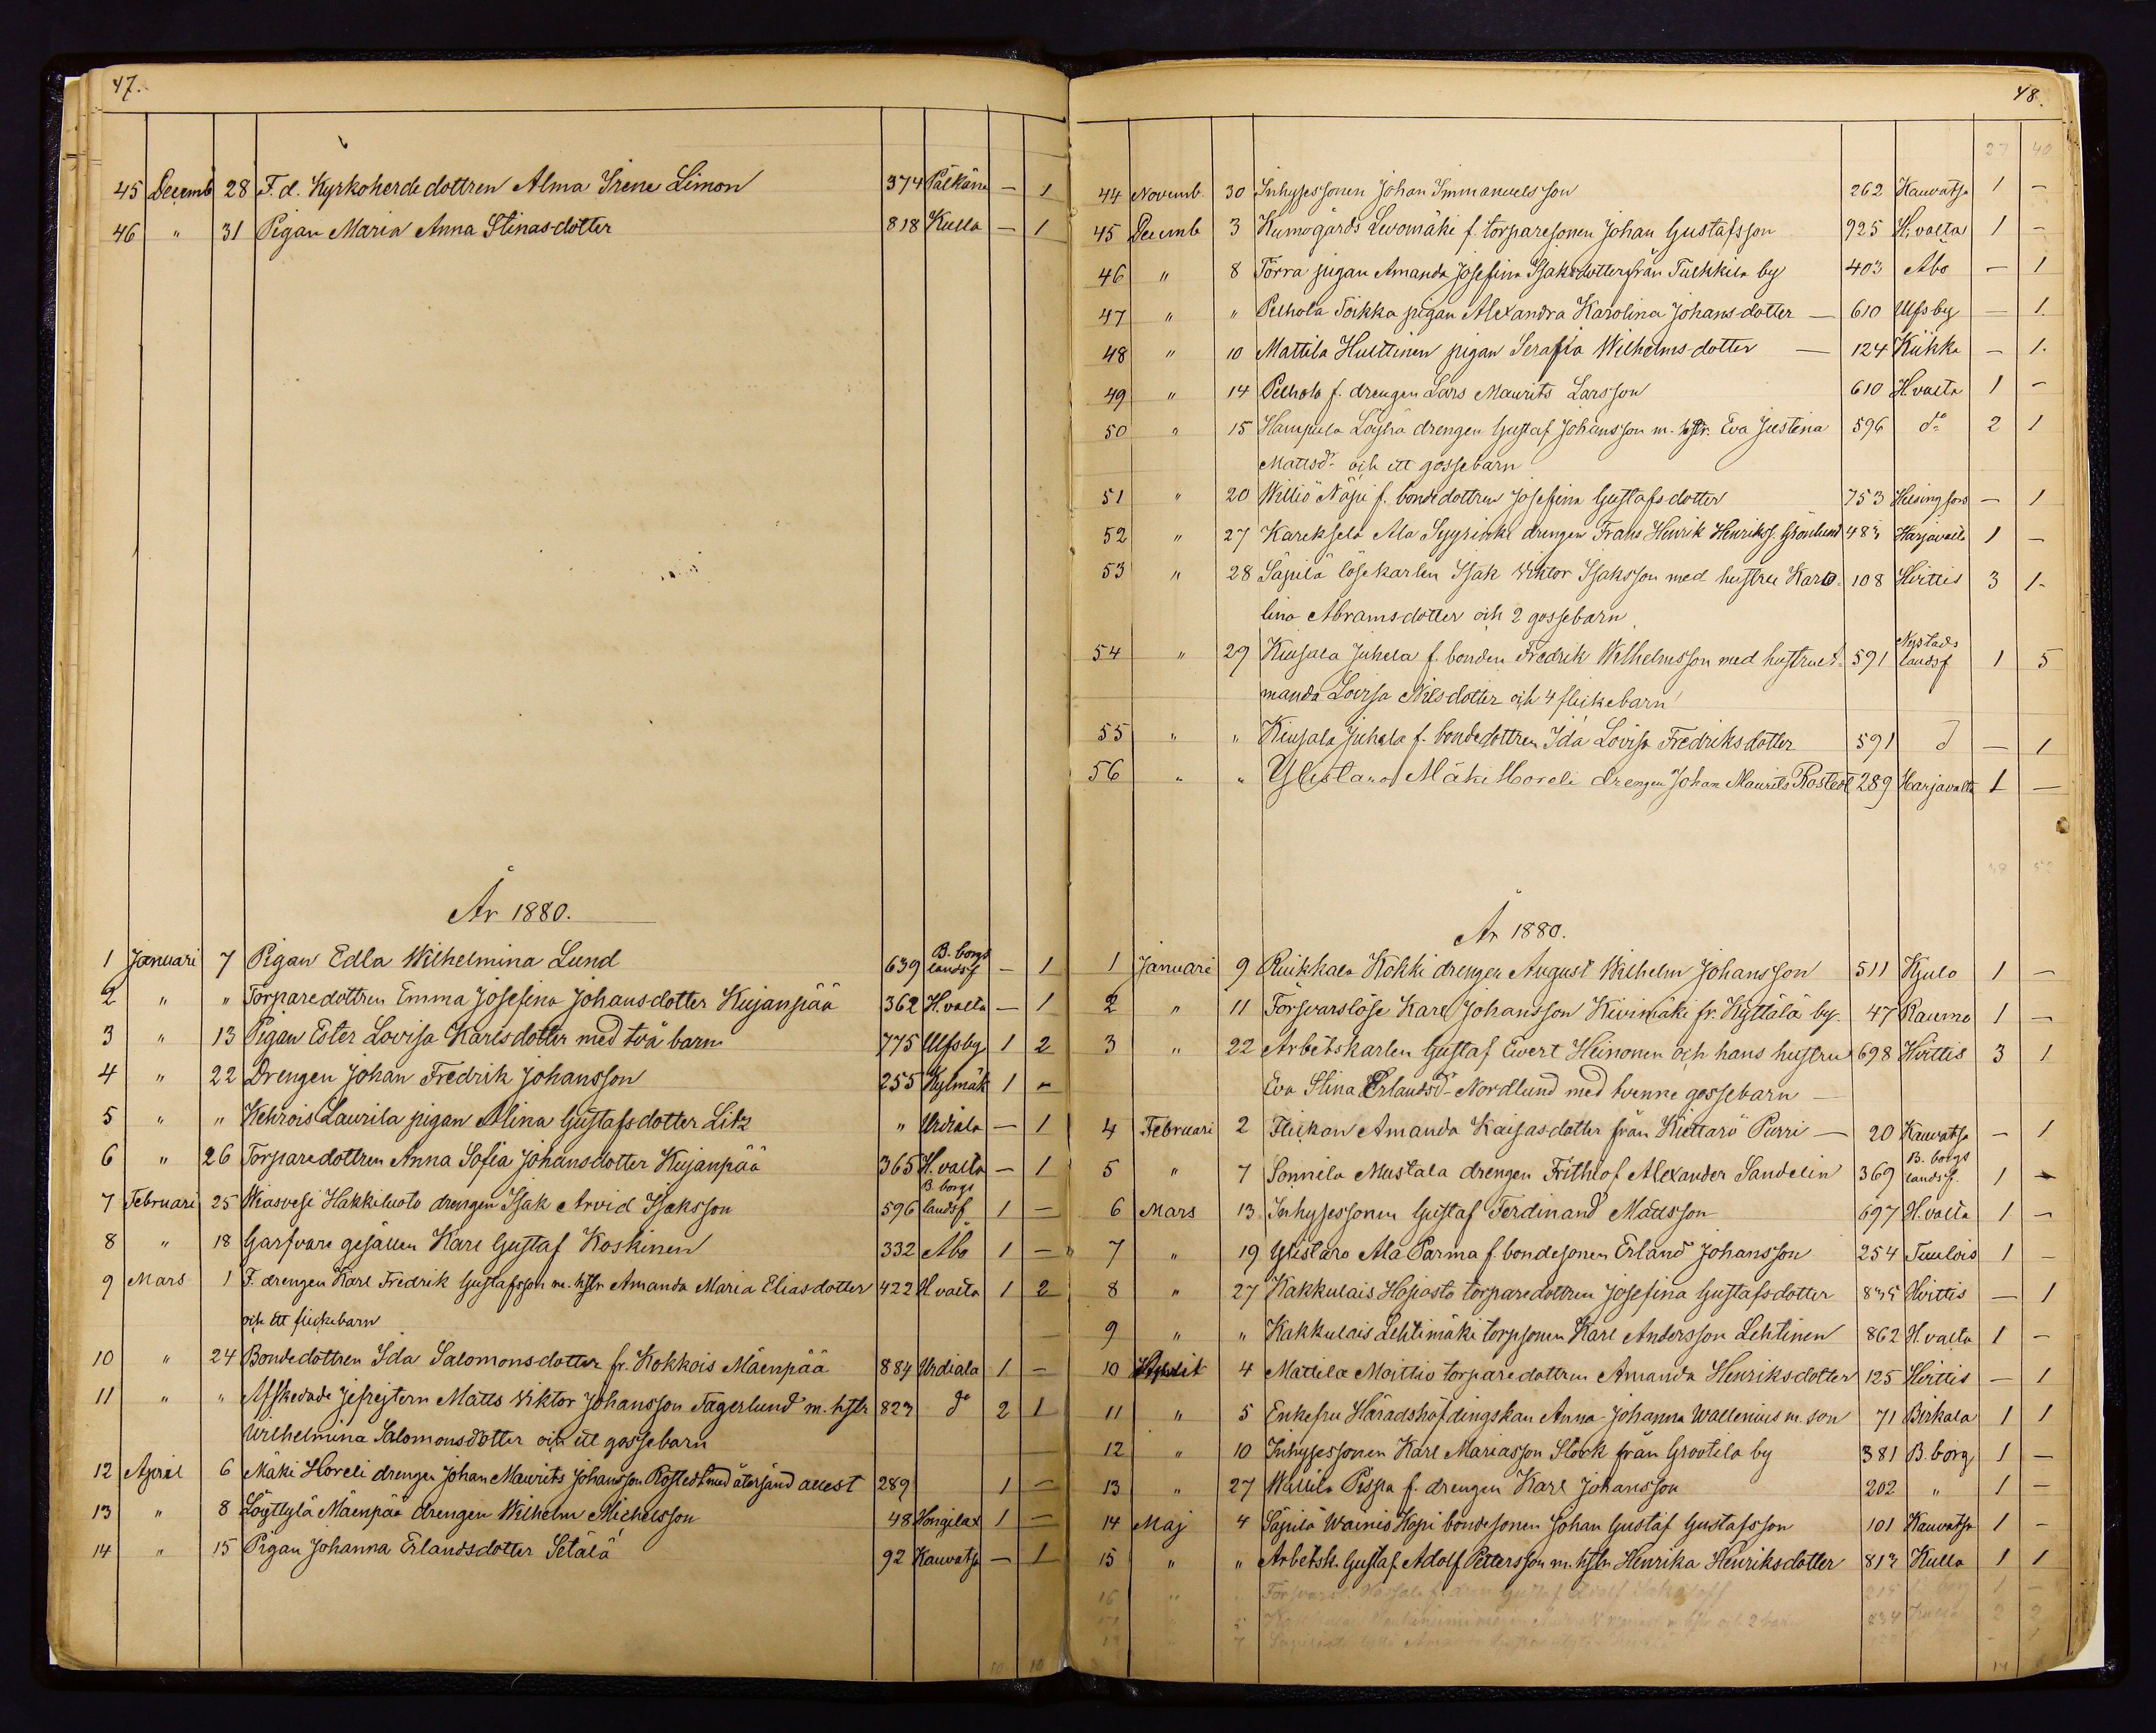 47.
45 Decemb 28 F. d. Kyrkoherde dottren Alma Irene Limon 374 Pälkäne — 1
46 " 31 Pigan Maria Anna Stinasdotter 818 Kulla — 1
År 1880.
1 Januari 7 Pigan Edla Wilhelmina Lund 639 B. borgs landsf — 1
2 " " Torparedottren Emma Josefina Johansdotter Kujanpää 362 H. valta — 1
3 " 13 Pigan Ester Lovisa Karlsdotter med två barn 775 Ulfsby 1 2
4 " 22 Drengen Johan Fredrik Johansson 255 Kylmäk 1 —
5 " " Kehrois Laurila pigan Alina Gustafsdotter Litz " Urdiala — 1
6 " 26 Torparedottren Anna Sofia Johansdotter Kujanpää 365 H. valta — 1
7 Februari 25 Wiasvesi Hakkiluoto drengen Isak Arvid Isaksson 596 B. borgs landsf 1 —
8 " 18 Garfvare gesällen Karl Gustaf Koskinen 332 Åbo 1 —
9 Mars 1 F. drengen Karl Fredrik Gustafsson m. hstr Amanda Maria Eliasdotter 422 H valta 1 2
och ett flickebarn
10 " 24 Bondedottren Ida Salomonsdotter fr. Kokkois Mäenpää 884 Urdiala 1 —
11 " " Afskedade jefrejtern Matts Viktor Johansson Fagerlund m. hstr 823 do 2 1
Wilhelmina Salomonsdotter och ett gossebarn
12 April 6 Mäki Horeli drengen Johan Maurits Johansson Rostedt med återsänd attest 289 1 —
13 " 8 Löyttylä Mäenpää drengen Wilhelm Michelsson 48 Hongilax 1 —
14 " 15 Pigan Johanna Erlandsdotter Setälä 92 Kauvatsa — 1
10 10
48.
27 40
44 Novemb. 30 Inhysessonen Johan Immanuelsson 262 Kauvatsa 1 —
45 Decemb 3 Kumogårds Levomäki f. torparesonen Johan Gustafsson 925 H. valta 1 —
46 " 8 Torra pigan Amanda Josefina Isaksdotter från Tulkkila by 403 Åbo — 1
47 " " Pelhola Toikka pigan Alexandra Karolina Johansdotter — 610 Ulfsby — 1.
48 " 10 Mattila Hulttinen pigan Serafia Wilhelmsdotter — 124 Kiikka — 1.
49 " 14 Pelhola f. drengen Lars Maurits Larsson 610 H. valta 1 —
50 " 15 Hampula Löyhä drengen Gustaf Johansson m. hstr. Eva Justina 596 do 2 1
Mattsdr och ett gossebarn
51 " 20 Williö Näpi f. bondedottren Josefina Gustafsdotter 753 Helsingfors — 1
52 " 27 Kareksela Ala Syyrinki drengen Frans Henrik Henrikss. Grönlund Harjavalta 1 —
53 " 28 Säpilä lösekarlen Isak Viktor Isaksson med hustru Karo- 108 Hvittis 3 1
lina Abramsdotter och 2 gossebarn
54 " 29 Kiusala Juhela f. bonden Fredrik Wilhelmsson med hustru A- 591 Nystads landsf 1 5
manda Lovisa Nilsdotter och 4 flickebarn
55 " " Kiusala Juhela f. bondedottren Ida Lovisa Fredriksdotter 591 d — 1
56 " " Ylistaro Mäki Horeli drengen Johan Maurits Rostedt 289 Harjavalta 1 —
38 52
År 1880.
1 Januari 9 Ruikkala Kokki drengen August Wilhelm Johansson 511 Kjulo 1 —
2 " 11 Försvarslöse Karl Johansson Kivimäki fr. Kyttälä by. 47 Raumo 1 —
3 " 22 Arbetskarlen Gustaf Evert Heinonen och hans hustru 698 Hvittis 3 1
Eva Stina Erlandsdr Nordlund med tvenne gossebarn —
4 Februari 2 Flickan Amanda Kaisasdotter från Kiettarö Purri — 20 Kauvatsa — 1
5 " 7 Sonnila Mustala drengen Frithiof Alexander Sandelin 369 B. borgs landsf. 1 —
6 Mars 13 Inhysessonen Gustaf Ferdinand Mattsson 697 H. valta 1 —
7 " 19 Ylistaro Ala Parma f. bondesonen Erland Johansson 254 Tuulois 1 —
8 " 27 Kakkulais Hojosta torparedottren Josefina Gustafsdotter 835 Hvittis — 1
9 " " Kakkulais Lehtimäki torpsonen Karl Andersson Lehtinen 862 H. valta 1 —
10 April 4 Mattila Moittio torparedottren Amanda Henriksdotter 125 Hvittis — 1
11 " 5 Enkefru Häradshöfdingskan Anna Johanna Wallenius m. son 71 Birkala 1 1
12 " 10 Inhysessonen Karl Mariasson Stork från Grootila by 381 B. borg 1 —
13 " 27 Wallila Pispa f. drengen Karl Johansson 202 " 1 —
14 Maj 4 Säpilä Wainio Hopi bondesonen Johan Gustaf Gustafsson 101 Kauvatsa 1 —
15 " " Arbetsk. Gustaf Adolf Pettersson m. hstr Henrika Henriksdotter 813 Kulla 1 1
16 " Gustaf Adolf 1 —
5 834 Kulla 2 2
7
14